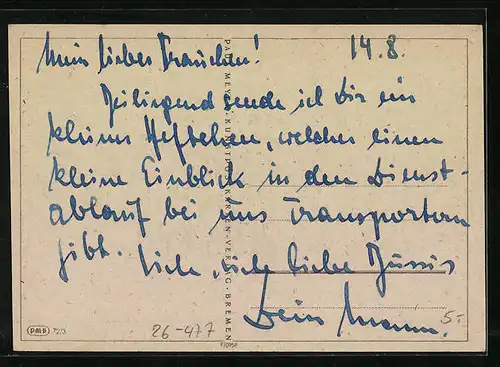 Mein liebes Frauchen! 14.8.
Beiliegend sende ich Dir ein
kleines Heftchen, welches einen
kleine Einblick in den Dienst-
ablauf bei uns Transportern
gibt. Viele, viele liebe Bussis
Dein Mann.
PAUL MEYER · KUNSTPOSTKARTEN-VERLAG · BREMEN
PMB 72/3
26-477
5.-